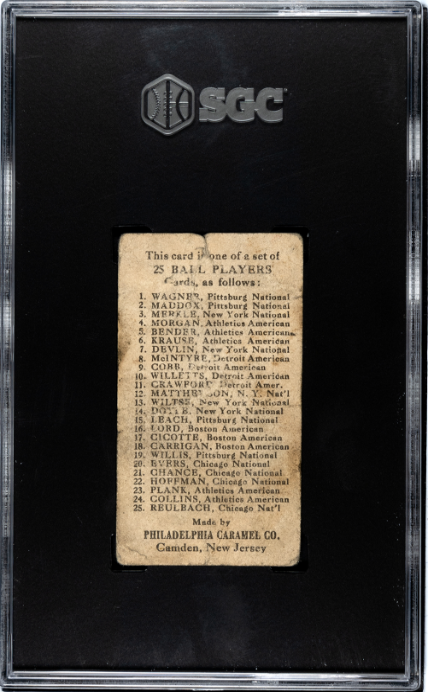 SGC
This card is one of a set of
25 BALL PLAYERS
Cards, as follows:
1. WAGNER, Pittsburg National
2. MADDOX, Pittsburg National
3. MERKLE, New York National
4. MORGAN, Athletics American
5. BENDER, Athletics American
6. KRAUSE, Athletics American
7. DEVLIN, New York National
8. McINTYRE, Detroit American
9. COBB, Detroit American
10. WILLETTS, Detroit American
11. CRAWFORD, Detroit Amer.
12. MATTHEWSON, N. Y. Nat'l
13. WILTSE, New York National
14. DOYLE, New York National
15. LEACH, Pittsburg National
16. LORD, Boston American
17. CICOTTE, Boston American
18. CARRIGAN, Boston American
19. WILLIS, Pittsburg National
20. EVERS, Chicago National
21. CHANCE, Chicago National
22. HOFFMAN, Chicago National
23. PLANK, Athletics American
24. COLLINS, Athletics American
25. REULBACH, Chicago Nat'l
Made by
PHILADELPHIA CARAMEL CO.
Camden, New Jersey